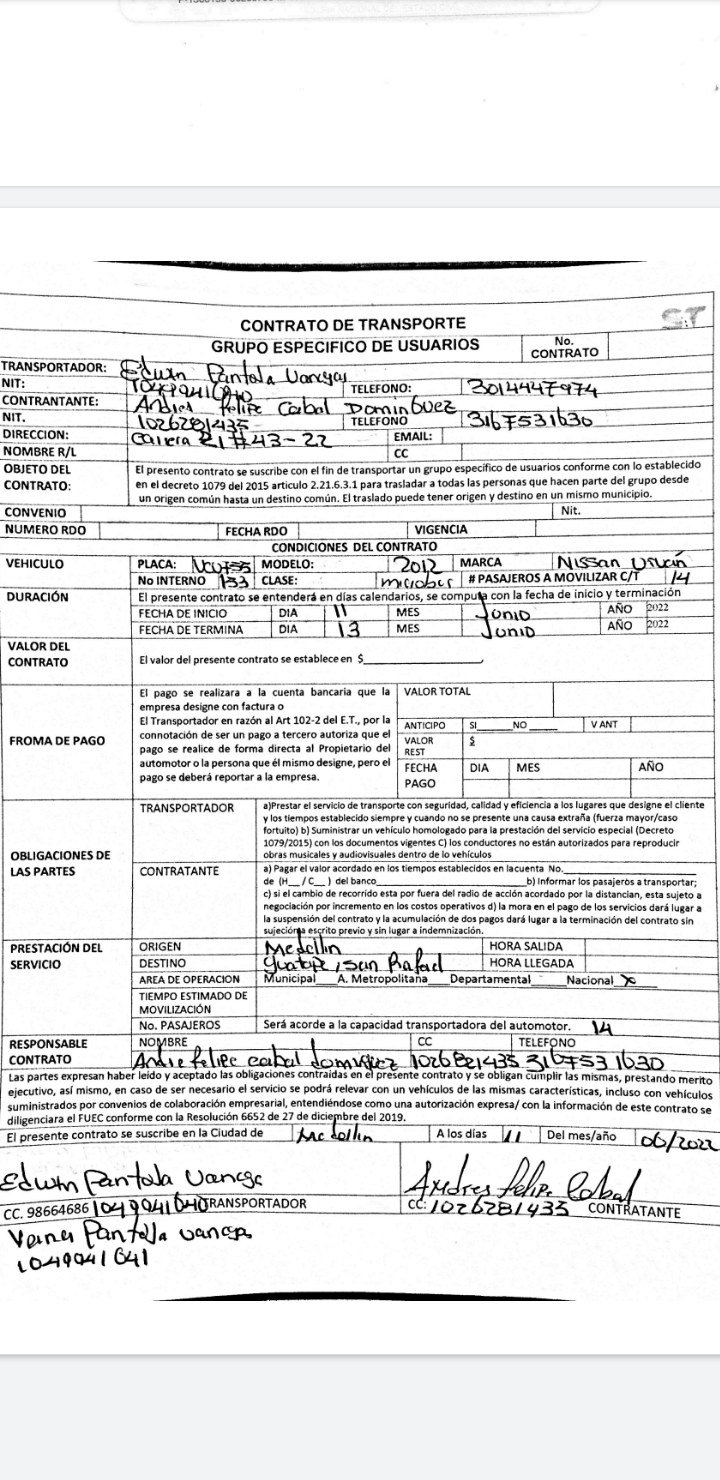 CONTRATO DE TRANSPORTE
GRUPO ESPECIFICO DE USUARIOS No. CONTRATO
TRANSPORTADOR: Edwin Pantoja Vanegas
NIT: TELEFONO: 3014447974
CONTRANTANTE: Andres Felipe Cabal Dominguez
NIT. 1026281435 TELEFONO 3167531630
DIRECCION: Carrera 21 #43-22 EMAIL:
NOMBRE R/L CC
OBJETO DEL CONTRATO: El presento contrato se suscribe con el fin de transportar un grupo específico de usuarios conforme con lo establecido
en el decreto 1079 del 2015 articulo 2.21.6.3.1 para trasladar a todas las personas que hacen parte del grupo desde
un origen común hasta un destino común. El traslado puede tener origen y destino en un mismo municipio.
CONVENIO Nit.
NUMERO RDO FECHA RDO VIGENCIA
CONDICIONES DEL CONTRATO
VEHICULO PLACA: MODELO: 2012 MARCA Nissan Urvan
No INTERNO 133 CLASE: microbus # PASAJEROS A MOVILIZAR C/T 14
DURACIÓN El presente contrato se entenderá en días calendarios, se computa con la fecha de inicio y terminación
FECHA DE INICIO DIA 11 MES Junio AÑO 2022
FECHA DE TERMINA DIA 13 MES Junio AÑO 2022
VALOR DEL CONTRATO El valor del presente contrato se establece en $
FROMA DE PAGO
El pago se realizara a la cuenta bancaria que la
empresa designe con factura o
El Transportador en razón al Art 102-2 del E.T., por la
connotación de ser un pago a tercero autoriza que el
pago se realice de forma directa al Propietario del
automotor o la persona que él mismo designe, pero el
pago se deberá reportar a la empresa.
VALOR TOTAL
ANTICIPO SI NO V ANT
VALOR REST $
FECHA PAGO DIA MES AÑO
OBLIGACIONES DE LAS PARTES
TRANSPORTADOR a)Prestar el servicio de transporte con seguridad, calidad y eficiencia a los lugares que designe el cliente
y los tiempos establecido siempre y cuando no se presente una causa extraña (fuerza mayor/caso
fortuito) b) Suministrar un vehículo homologado para la prestación del servicio especial (Decreto
1079/2015) con los documentos vigentes C) los conductores no están autorizados para reproducir
obras musicales y audiovisuales dentro de lo vehículos
CONTRATANTE a) Pagar el valor acordado en los tiempos establecidos en lacuenta No.
de (H__ / C__ ) del banco b) Informar los pasajeros a transportar;
c) si el cambio de recorrido esta por fuera del radio de acción acordado por la distancian, esta sujeto a
negociación por incremento en los costos operativos d) la mora en el pago de los servicios dará lugar a
la suspensión del contrato y la acumulación de dos pagos dará lugar a la terminación del contrato sin
sujeción a escrito previo y sin lugar a indemnización.
PRESTACIÓN DEL SERVICIO
ORIGEN Medellin HORA SALIDA
DESTINO Guatape, san Rafael HORA LLEGADA
AREA DE OPERACION Municipal A. Metropolitana Departamental Nacional X
TIEMPO ESTIMADO DE MOVILIZACIÓN
No. PASAJEROS Será acorde a la capacidad transportadora del automotor. 14
RESPONSABLE CONTRATO NOMBRE CC TELEFONO
Andre felipe cabal dominguez 1026821435 3167531630
Las partes expresan haber leído y aceptado las obligaciones contraídas en el presente contrato y se obligan cumplir las mismas, prestando merito
ejecutivo, así mismo, en caso de ser necesario el servicio se podrá relevar con un vehículos de las mismas características, incluso con vehículos
suministrados por convenios de colaboración empresarial, entendiéndose como una autorización expresa/ con la información de este contrato se
diligenciara el FUEC conforme con la Resolución 6652 de 27 de diciembre del 2019.
El presente contrato se suscribe en la Ciudad de Medellin A los días 11 Del mes/año 06/2022
Edwin Pantoja Vanegas Andres Felipe Cabal
CC. 98664686 1049941640 TRANSPORTADOR CC: 1026281435 CONTRATANTE
Pantoja vanegas
1049941641